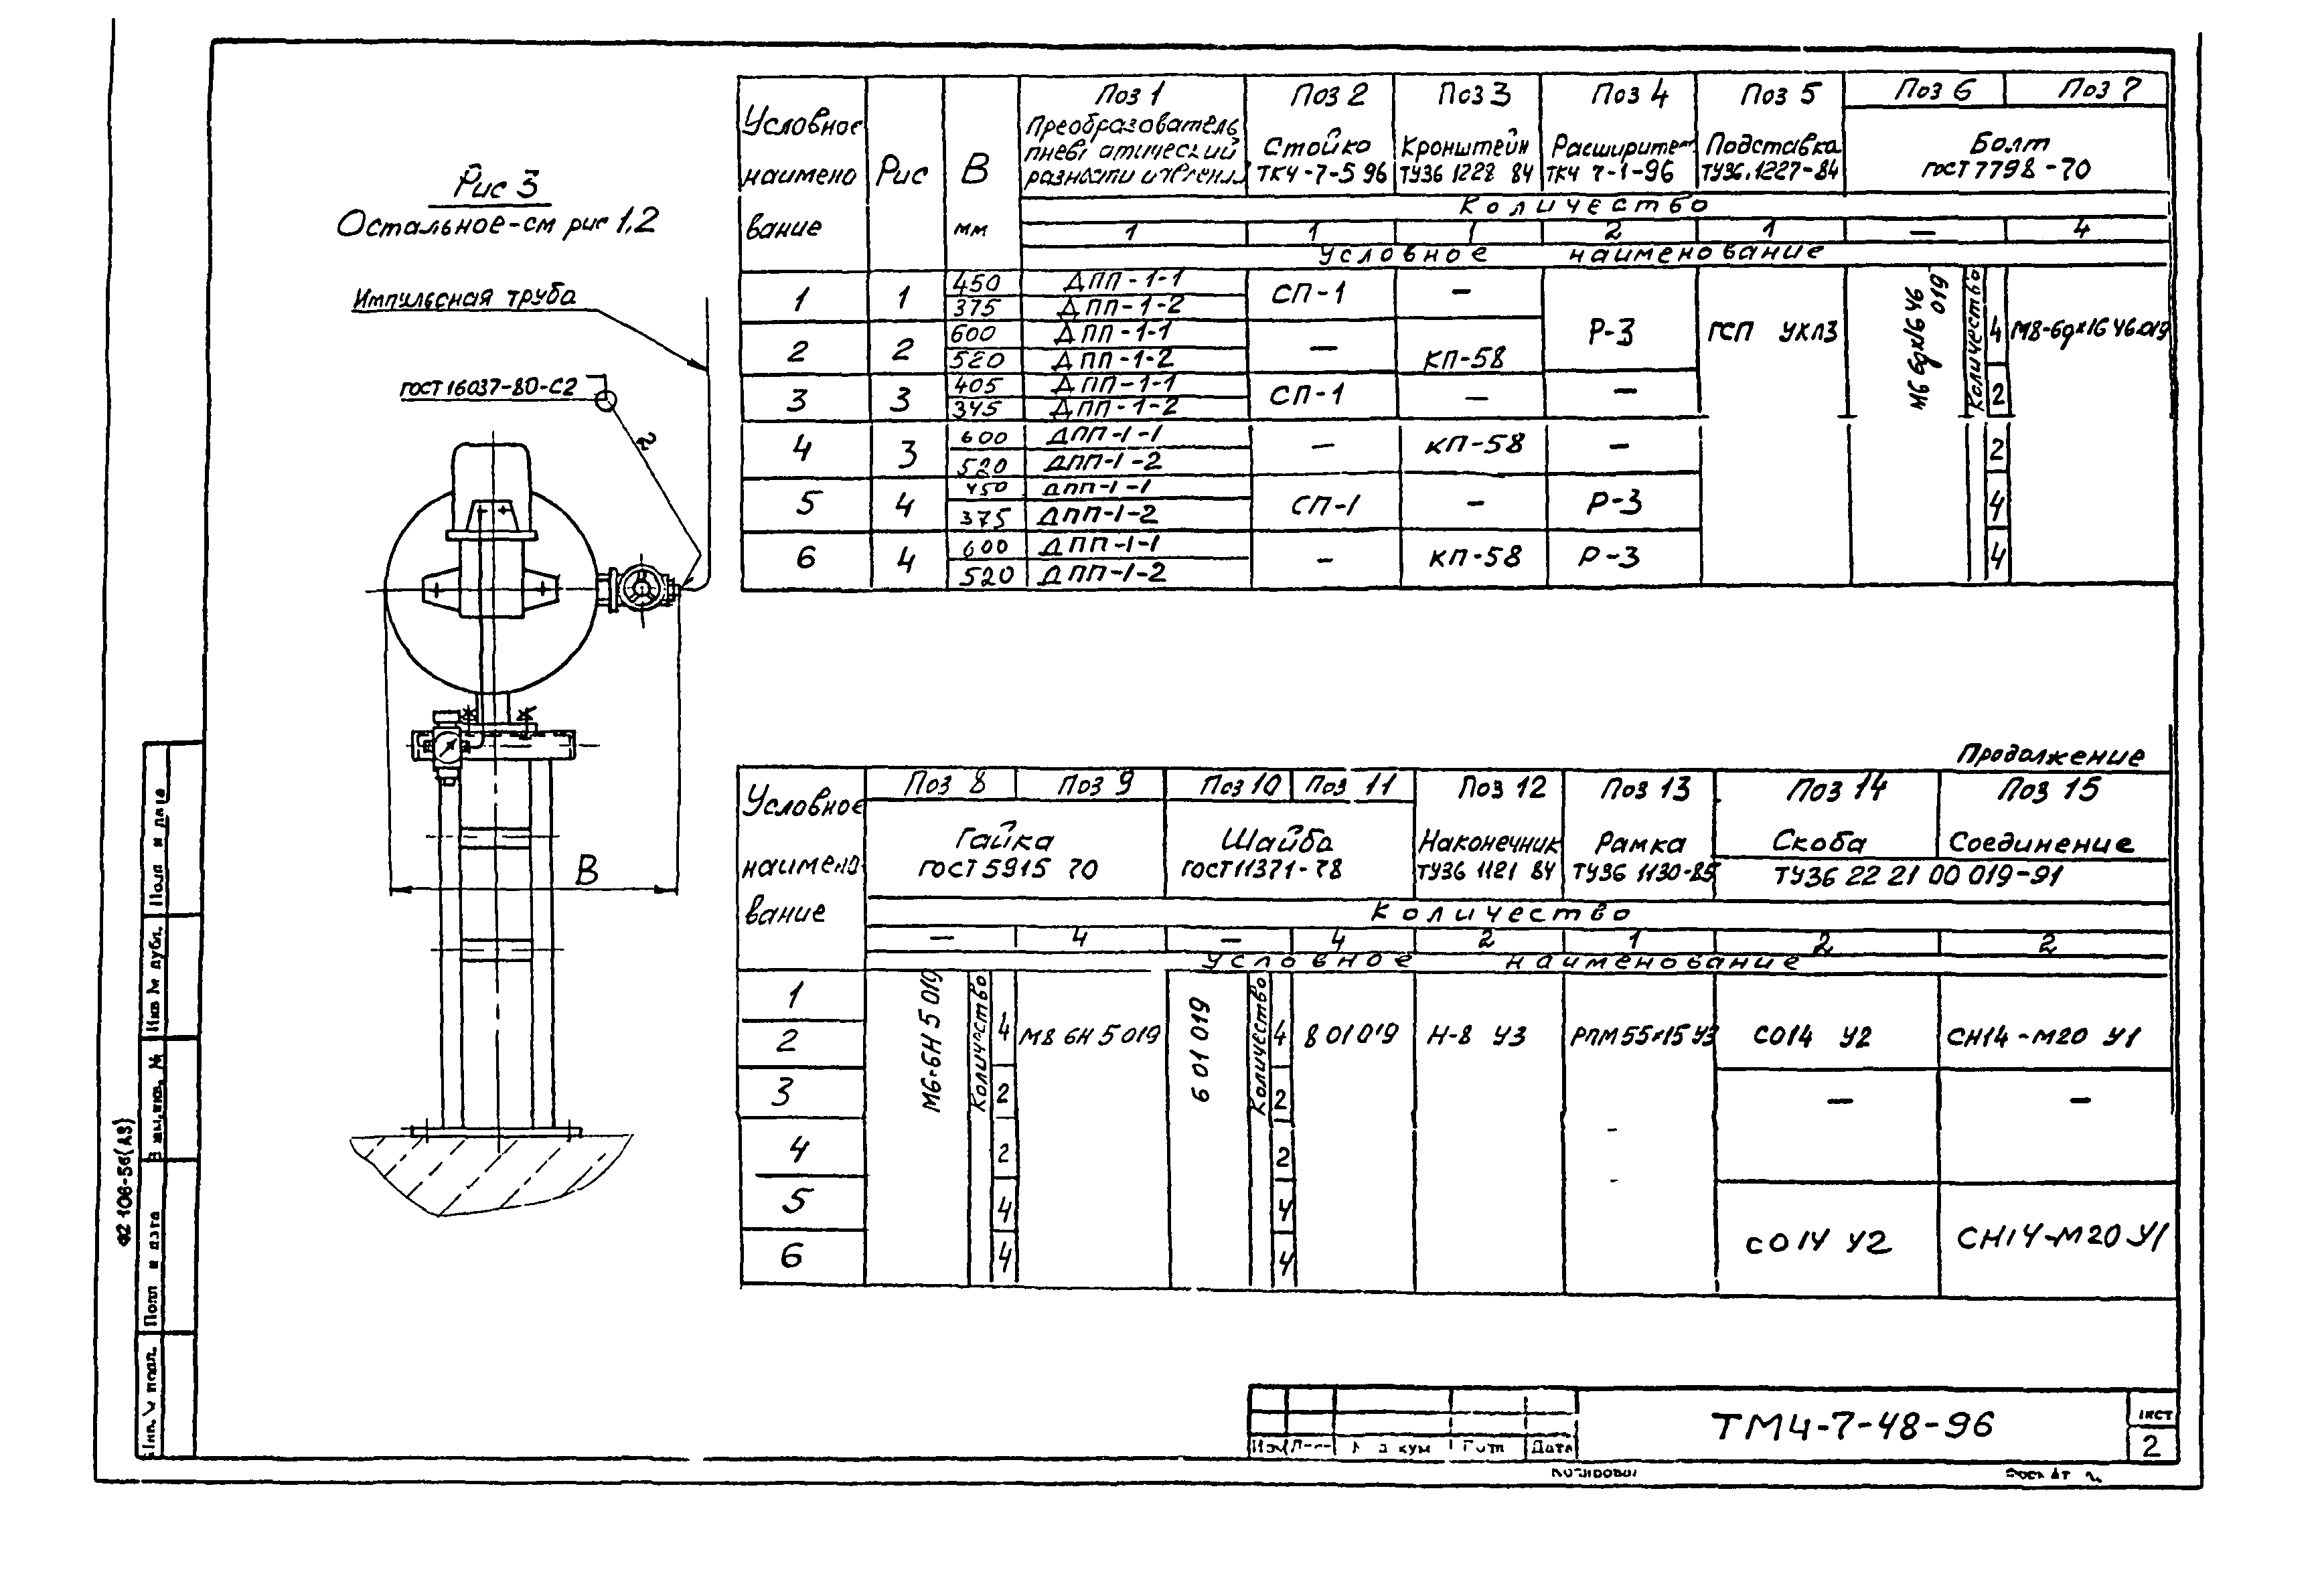 Рис 3
Остальное-см рис 1,2
Импульсная труба
ГОСТ 16037-80-С2
2
В
Условное наименование
Рис
В мм
Поз 1
Поз 2
Поз 3
Поз 4
Поз 5
Поз 6
Поз 7
Преобразователь
разности
Стойко
ТК4-7-5 96
Кронштейн
ТУ36 1228 84
ТК4 7-1-96
Подставка
ТУ36.1227-84
Болт
ГОСТ 7798-70
Количество
1 1 1 2 1 — 4
Условное наименование
1 1 450 ДПП-1-1 СП-1 —
375 ДПП-1-2
2 2 600 ДПП-1-1 — КП-58 Р-3 ГСП УХЛ3 М6 6gх16 46 019 Количество 4 М8-6gх16 46.019
520 ДПП-1-2
3 3 405 ДПП-1-1 СП-1 — — 2
345 ДПП-1-2
4 3 600 ДПП-1-1 — КП-58 — 2
520 ДПП-1-2
5 4 450 ДПП-1-1 СП-1 — Р-3 4
375 ДПП-1-2
6 4 600 ДПП-1-1 — КП-58 Р-3 4
520 ДПП-1-2
Продолжение
Условное наименование
Поз 8
Поз 9
Поз 10
Поз 11
Поз 12
Поз 13
Поз 14
Поз 15
Гайка
ГОСТ 5915 70
Шайба
ГОСТ 11371-78
Наконечник
ТУ36 1121 84
Рамка
ТУ36 1130-85
Скоба
Соединение
ТУ36 22 21 00 019-91
Количество
— 4 — 4 2 1 2 2
Условное наименование
1
2 М6-6Н 5 019 Количество 4 М8 6Н 5 019 6 01 019 Количество 4 8 01 019 Н-8 У3 РПМ 55х15 У3 СО14 У2 СН14-М20 У1
3 2 2 — —
4 2 2
5 4 4
6 4 4 СО14 У2 СН14-М20 У1
Ф2 106-56(А3)
Инв № дубл.
Подп и дата
ТМ4-7-48-96
2
Дата